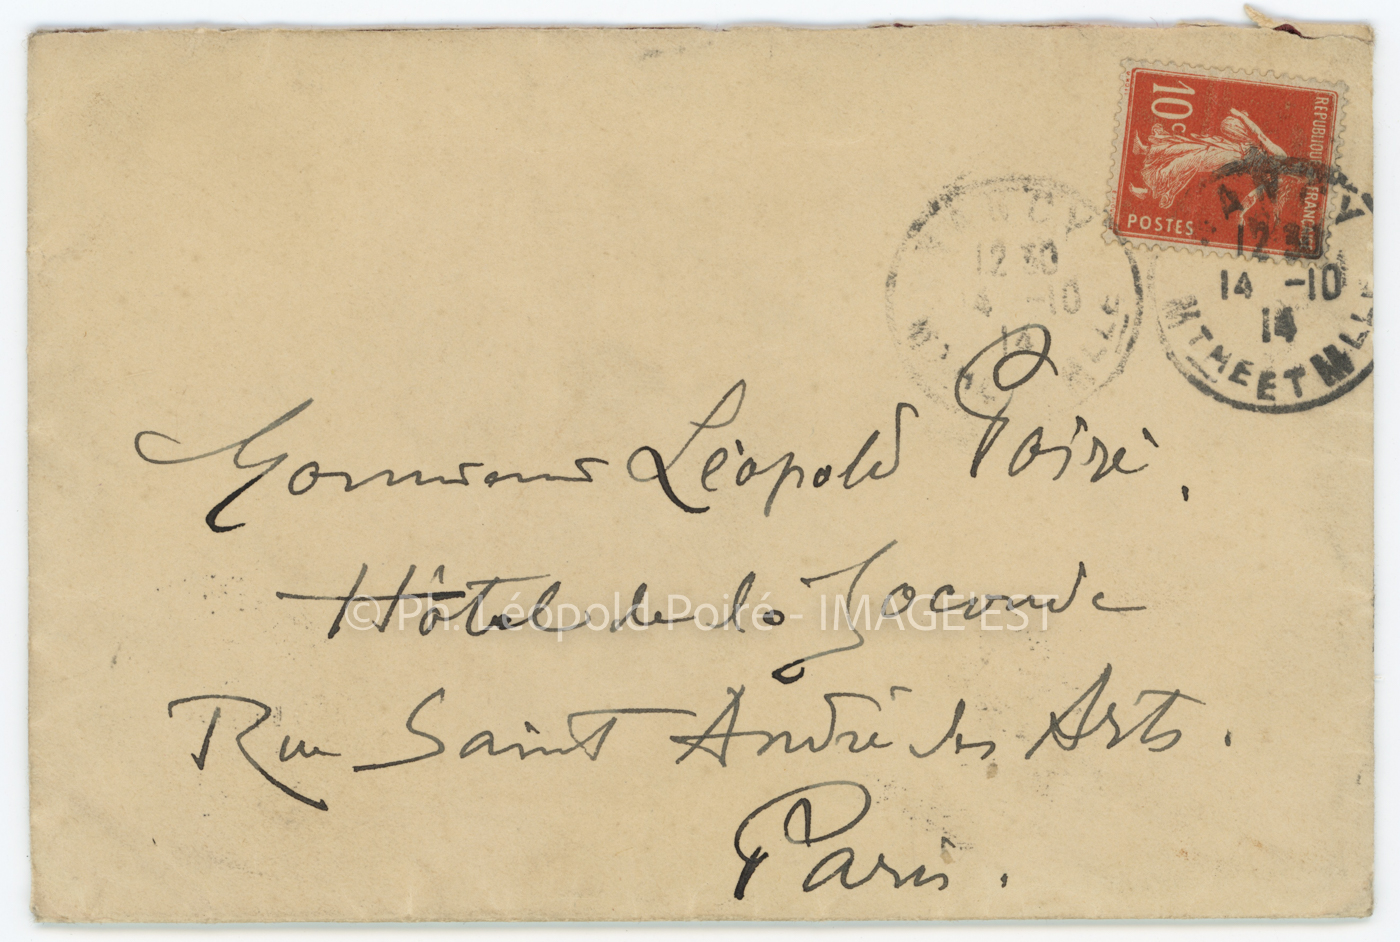 10c
REPUBLIQUE FRANCAISE
POSTES
NANCY
12 30
14 -10
14
MTHE ET MLLE
NANCY
12 30
14 -10
14
Monsieur Léopold Poiré,
Hôtel de la Joconde
© Ph. Léopold Poiré - IMAGE'EST
Rue Saint André des Arts.
Paris.